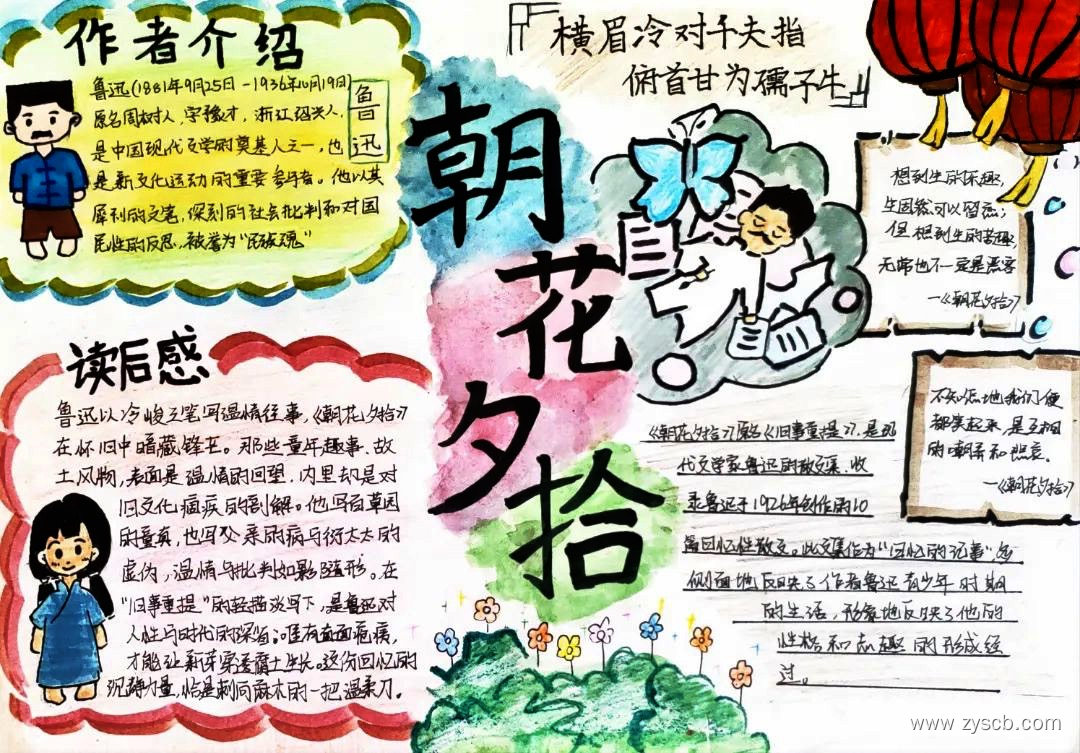 作者介绍
鲁迅(1881年9月25日-1936年10月19日)
原名周树人，字豫才，浙江绍兴人，
是中国现代文学的奠基人之一，也
是新文化运动的重要参与者。他以其
犀利的文笔，深刻的社会批判和对国
民性的反思，被誉为“民族魂”
鲁迅
横眉冷对千夫指
俯首甘为孺子牛
朝花夕拾
想到生的乐趣，
生固然可以留恋；
但想到生的苦趣，
无常也不一定是恶客
—《朝花夕拾》
不知怎地我们便
都笑起来，是互相
的嘲弄和
—《朝花夕拾》
读后感
鲁迅以冷峻之笔写温情往事，《朝花夕拾》
在怀旧中暗藏锋芒。那些童年趣事、故
土风物，表面是温情的回望，内里却是对
旧文化痼疾的剖解。他写百草园
的童真，也写父亲的病与衍太太的
虚伪，温情与批判如影随形。在
“旧事重提”的轻描淡写下，是鲁迅对
人性与时代的深省：唯有直面疮痍，
才能让新芽穿透腐土生长。这份回忆的
沉静力量，恰是刺向麻木的一把温柔刀。
《朝花夕拾》原名《旧事重提》，是现
代文学家鲁迅的散文集，收
录鲁迅于1926年创作的10
篇回忆性散文。此文集作为“回忆的记事”多
侧面地反映了作者鲁迅青少年时期
的生活，形象地反映了他的
性格和志趣的形成经
过。
www.zyscb.com